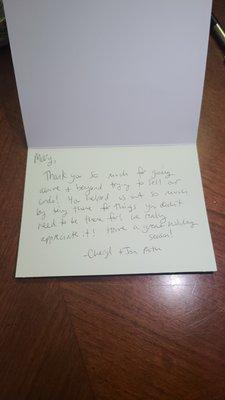 Mary,
Thank you so much for going
above + beyond trying to sell our
condo! You helped us out so much
by being there for things you didn't
need to be there for! We really
appreciate it! Have a great holiday
season!
-Cheryl + Jon